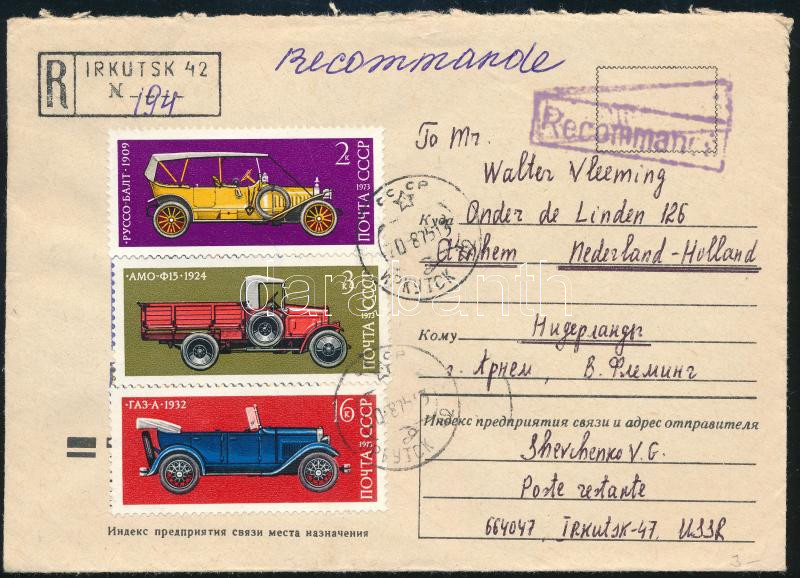 R IRKUTSK 42
N 194
Recommande
Recommandé
To Mr.
Walter Vleeming
Куда Onder de Linden 126
Arnhem Nederland-Holland
Кому Нидерланды
г. Арнем, В. Флеминг
Индекс предприятия связи и адрес отправителя
Shevchenko V.G.
Poste restante
664047, IRKUTSK-47, USSR
·РУССО-БАЛТ·1909
2к
ПОЧТА СССР
1973
·АМО-Ф15·1924
3к
ПОЧТА СССР
1973
·ГАЗ-А·1932
16к
ПОЧТА СССР
1973
СССР
ИРКУТСК
СССР
ИРКУТСК
darabanth
Индекс предприятия связи места назначения
3-